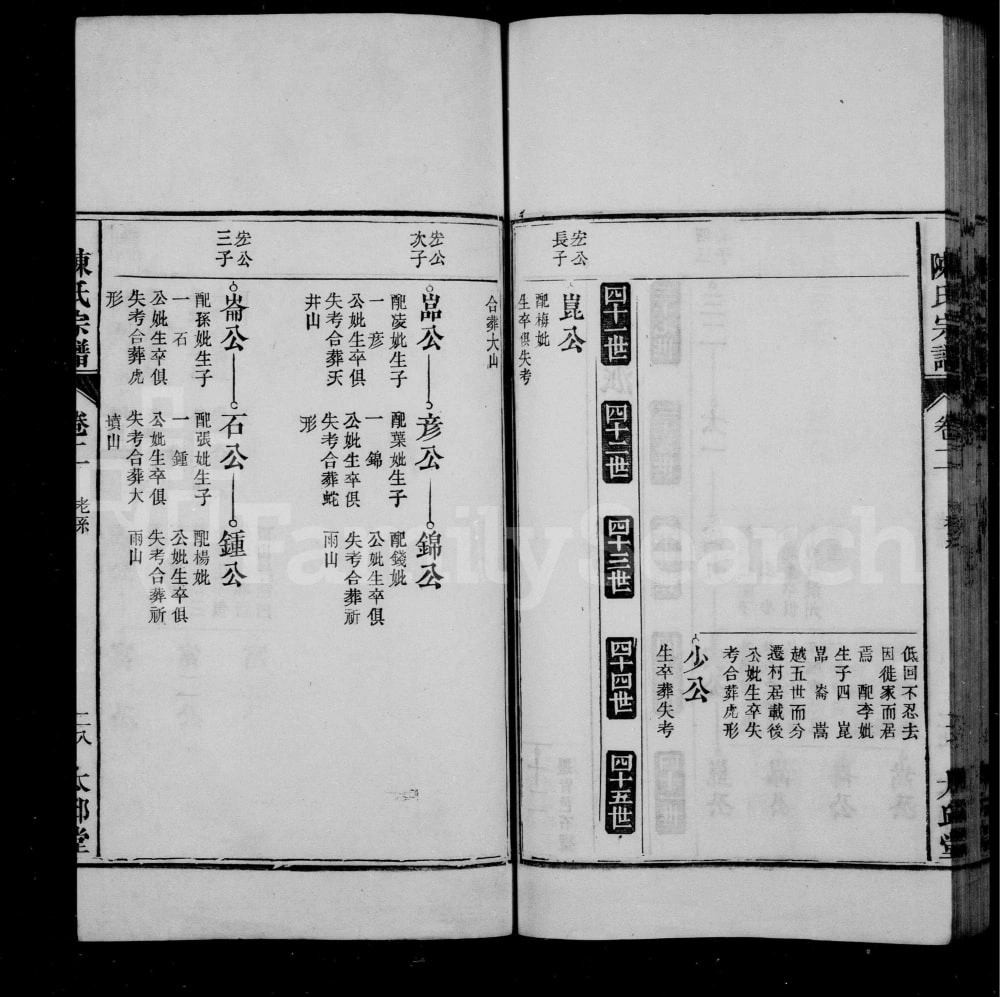 陳氏宗譜
卷二
太邱堂
低回不忍去
因徙家而居
焉 配李妣
生子四 崑
嵓 崙 嵩
越五世而分
遷村居載後
公妣生卒失
考合葬虎形
少公
生卒葬失考
四十一世
四十二世
四十三世
四十四世
四十五世
宏公
長子
崑公
配梅妣
生卒俱失考
合葬大山
宏公
次子
嵓公
配凌妣生子
一 彦
公妣生卒俱
失考合葬天
井山
彦公
配葉妣生子
一 錦
公妣生卒俱
失考合葬蛇
形
錦公
配錢妣
公妣生卒俱
失考合葬祈
雨山
宏公
三子
崙公
配孫妣生子
一 石
公妣生卒俱
失考合葬虎
形
石公
配張妣生子
一 鍾
公妣生卒俱
失考合葬大
墳山
鍾公
配楊妣
公妣生卒俱
失考合葬祈
雨山
陳氏宗譜
卷二
老系
二八
太邱堂
FamilySearch